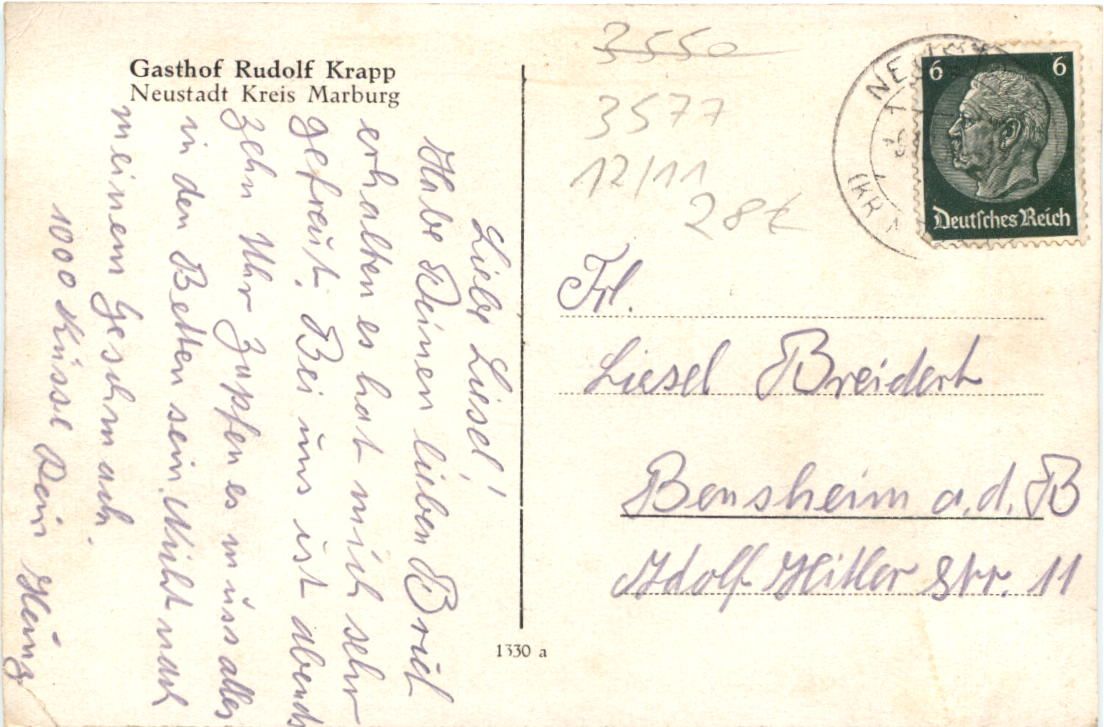 Gasthof Rudolf Krapp
Neustadt Kreis Marburg
Liebe Liesel!
Habe Deinen lieben Brief
erhalten es hat mich sehr
gefreut. Bei uns ist abends
zehn Uhr Zapfen es muss alles
in den Betten sein. Nicht nach
meinem
1000 Küsse Dein Heinz
1330 a
3550
3577
12/11
28€
6 6
Deutsches Reich
Frl.
Liesel Breidert
Bensheim a.d. B
Adolf Hitler Str. 11